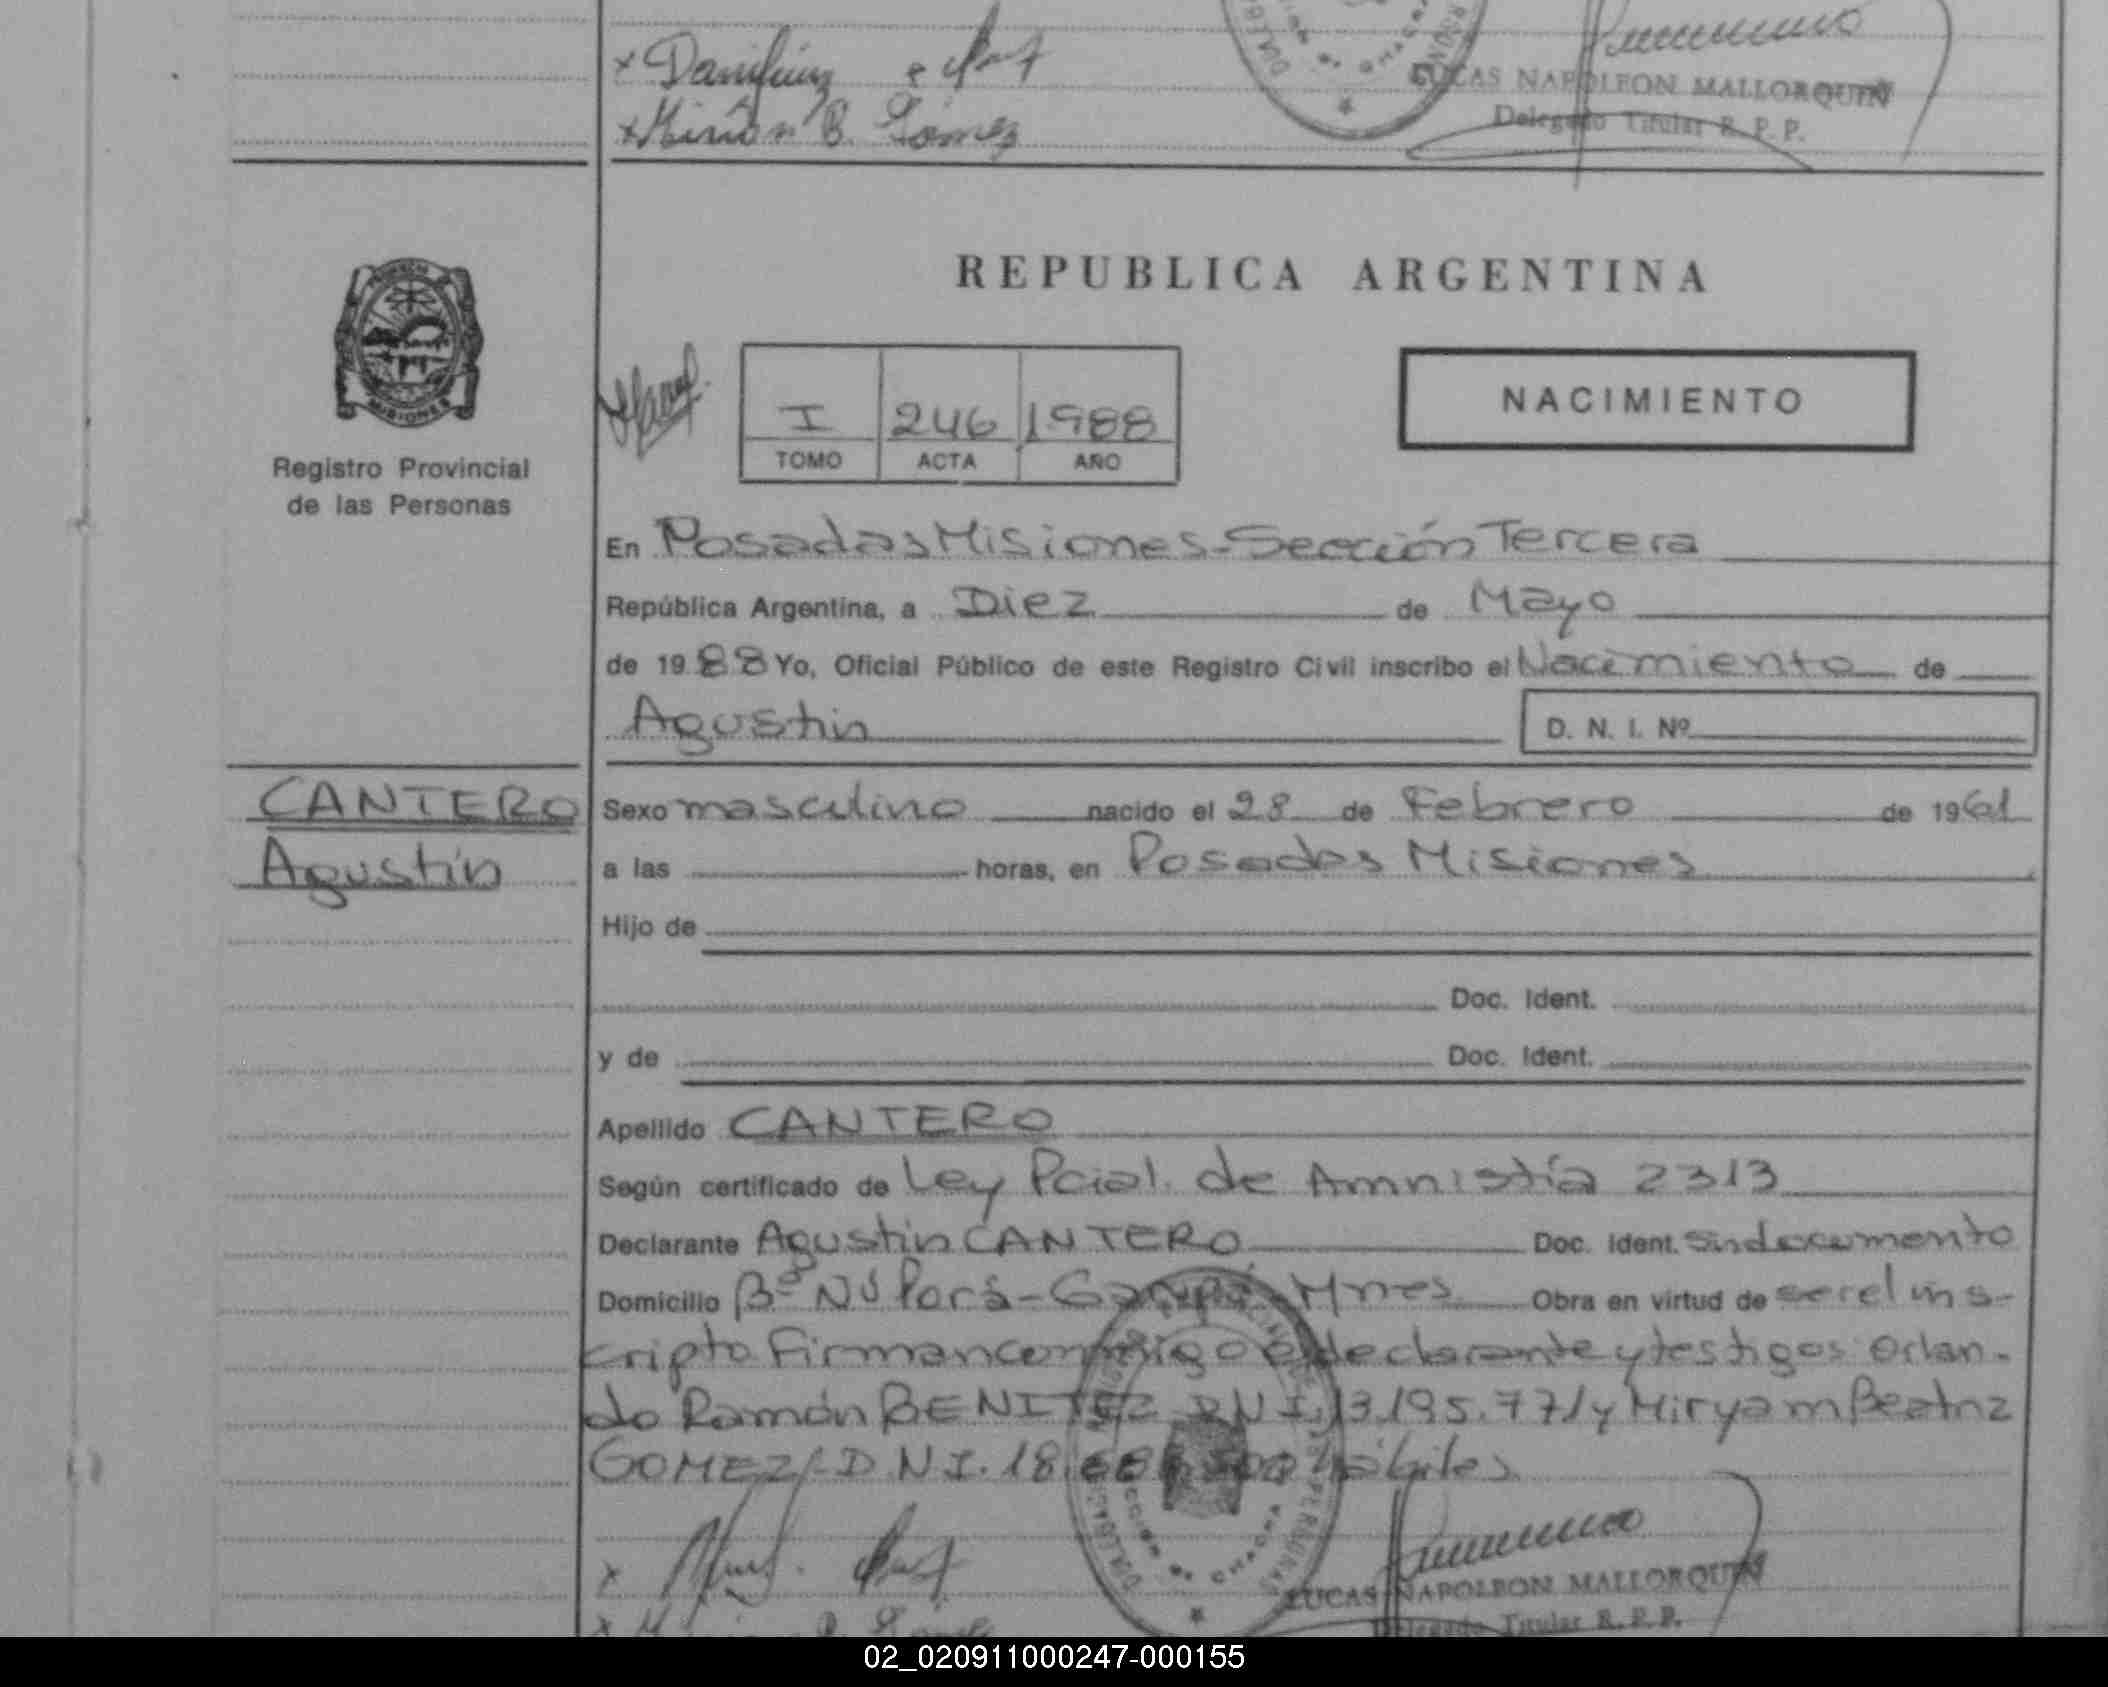 × Miriam B. Gómez
LUCAS NAPOLEON MALLORQUIN
Delegado Titular R. P. P.
MISIONES
Registro Provincial
de las Personas
REPUBLICA ARGENTINA
I 246 1988
TOMO ACTA AÑO
NACIMIENTO
En Posadas Misiones-Sección Tercera
República Argentina, a Diez de Mayo
de 1988 Yo, Oficial Público de este Registro Civil inscribo el Nacimiento de
Agustin
D. N. I. Nº
CANTERO
Agustín
Sexo masculino nacido el 28 de Febrero de 1961
a las horas, en Posadas Misiones
Hijo de
Doc. Ident.
y de Doc. Ident.
Apellido CANTERO
Según certificado de Ley Pcial. de Amnistía 2313
Declarante Agustin CANTERO Doc. Ident. sin documento
Domicilio Bº Ñú Porá-Garupá-Mnes Obra en virtud de ser el ins-
cripto Firman conmigo el declarante y testigos Orlan-
do Ramón BENITEZ D N I. 13.195.771 y Miryam Beatriz
GOMEZ-D.N.I. 18. hábiles
LUCAS NAPOLEON MALLORQUIN
Delegado Titular R. P. P.
02_020911000247-000155